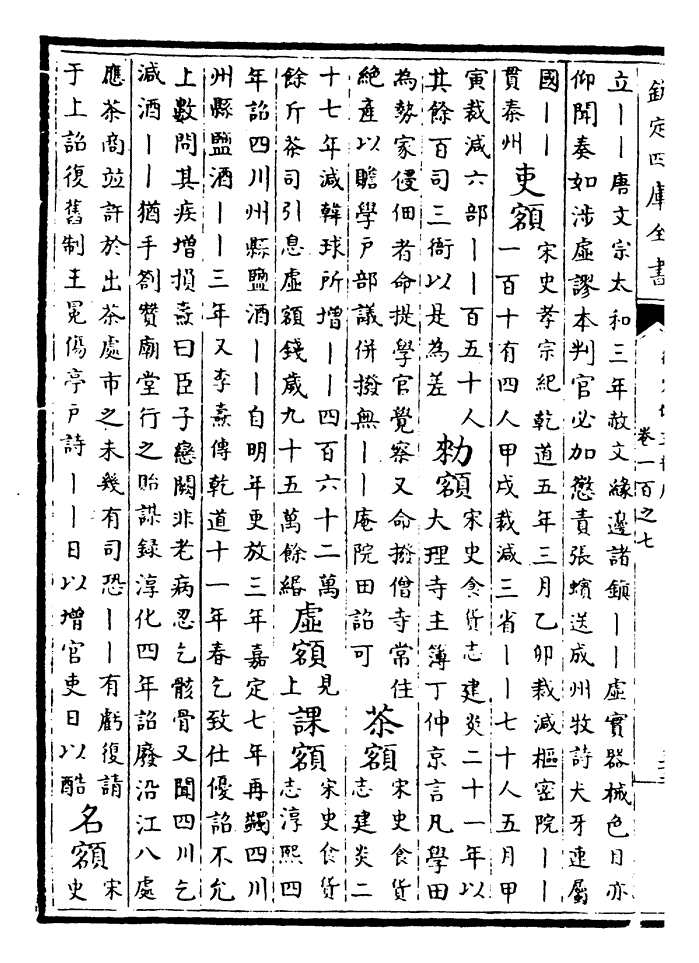 欽定四庫全書
卷一百之七
立丨丨唐文宗太和三年赦文緣邊諸鎮丨丨虛實器械色目亦
仰聞奏如涉虛謬本判官必加懲責張蠙送成州牧詩犬牙連屬
國丨丨
貫秦州
吏額
宋史孝宗紀乾道五年三月乙卯裁減樞密院丨丨
一百十有四人甲戌裁減三省丨丨七十人五月甲
寅裁減六部丨丨百五十人
其餘百司三衙以是為差
勑額
宋史食貨志建炎二十一年以
大理寺主簿丁仲京言凡學田
為勢家侵佃者命提學官覺察又命撥僧寺常住
絶產以贍學戶部議併撥無丨丨庵院田詔可
茶額
宋史食貨
志建炎二
十七年減韓球所增丨丨四百六十二萬
餘斤茶司引息虛額錢歲九十五萬餘緡
虛額
見
上
課額
宋史食貨
志淳熙四
年詔四川州縣鹽酒丨丨自明年更放三年嘉定七年再蠲四川
州縣鹽酒丨丨三年又李燾傳乾道十一年春乞致仕優詔不允
上數問其疾增損燾曰臣子戀闕非老病忍乞骸骨又聞四川乞
減酒丨丨猶手劄贊廟堂行之貽謀録淳化四年詔廢沿江八處
應茶商並許於出茶處市之未幾有司恐丨丨有虧復請
于上詔復舊制王冕傷亭戶詩丨丨日以增官吏日以酷
名額
宋
史